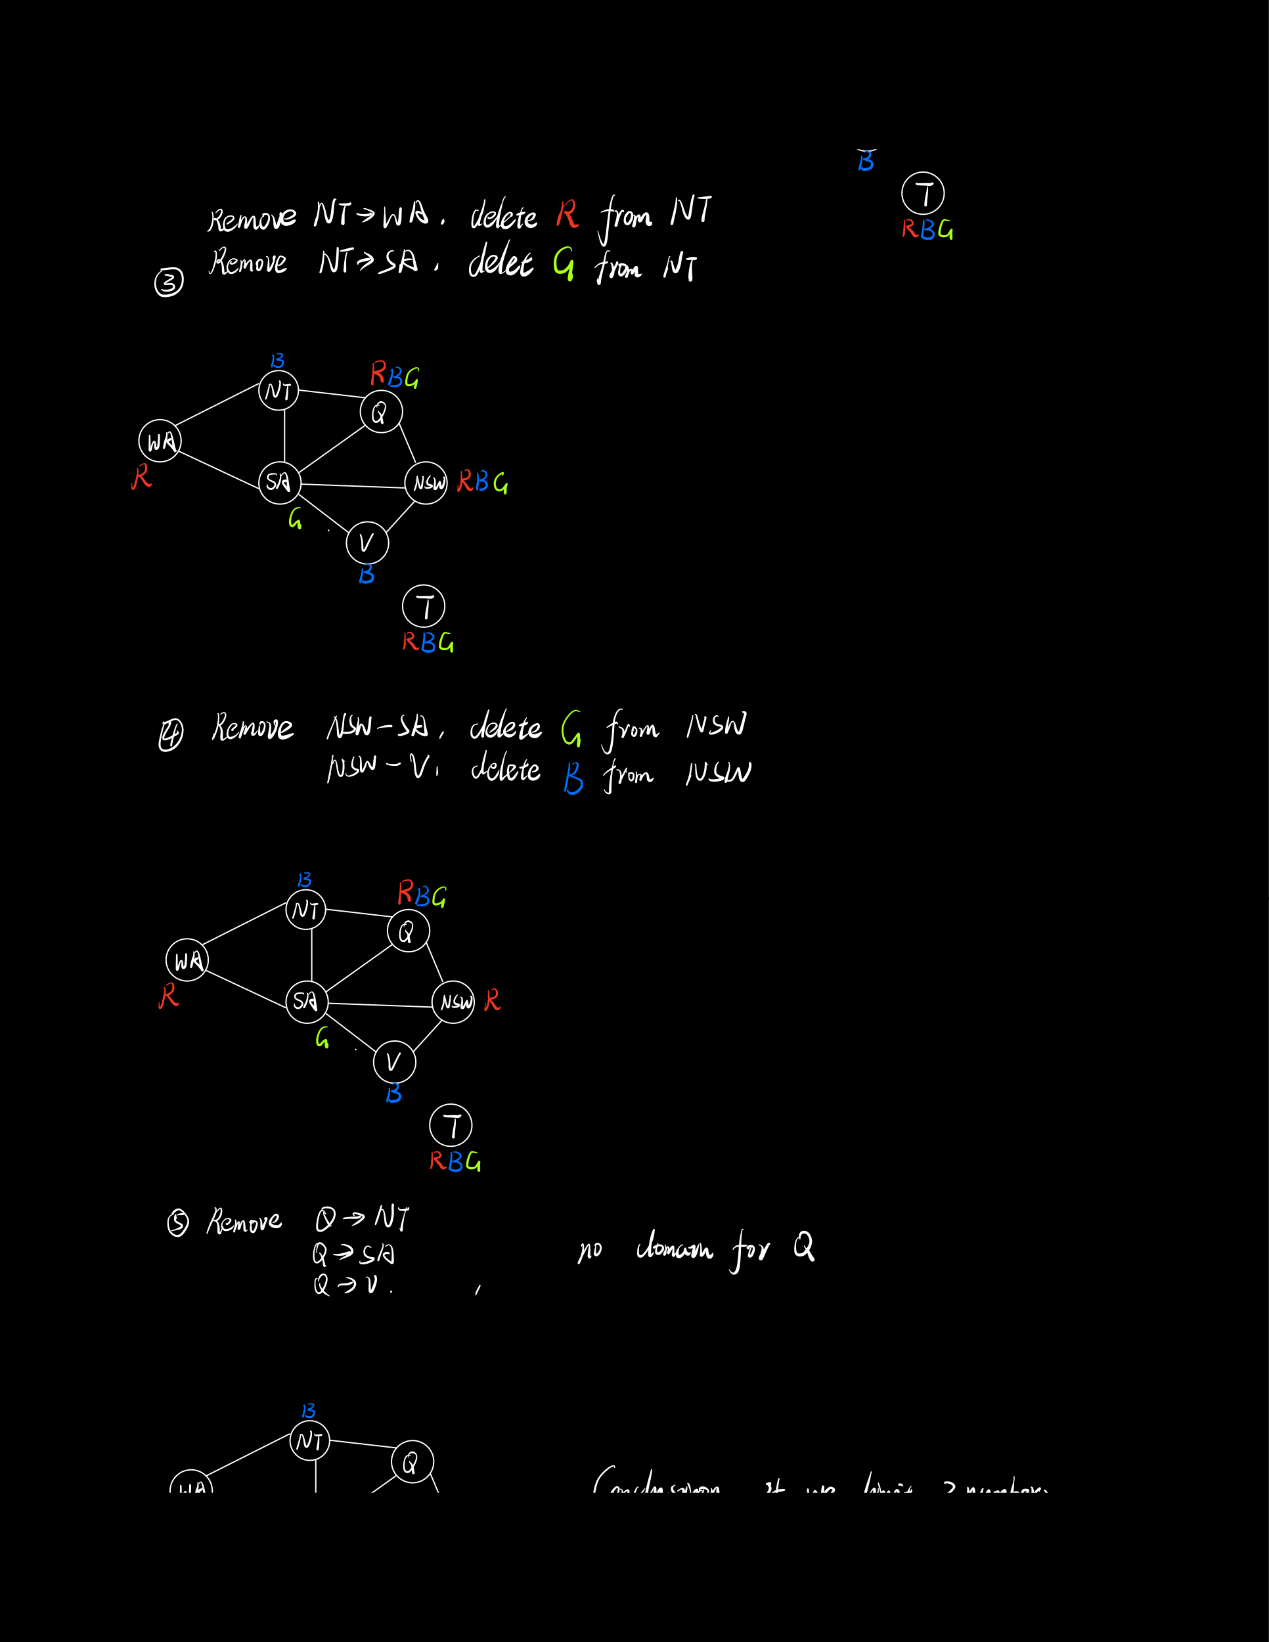 B
T
RBG
Remove NT→WA. delete R from NT
Remove NT→SA. delet G from NT
③
B
NT
RBG
Q
WA
R
SA
G
NSW RBG
V
B
T
RBG
④ Remove NSW-SA. delete G from NSW
NSW-V. delete B from NSW
B
NT
RBG
Q
WA
R
SA
G
NSW R
V
B
T
RBG
⑤ Remove Q→NT
Q→SA
Q→V.
no domain for Q
B
NT
Q
WA
Conclusion it we limit